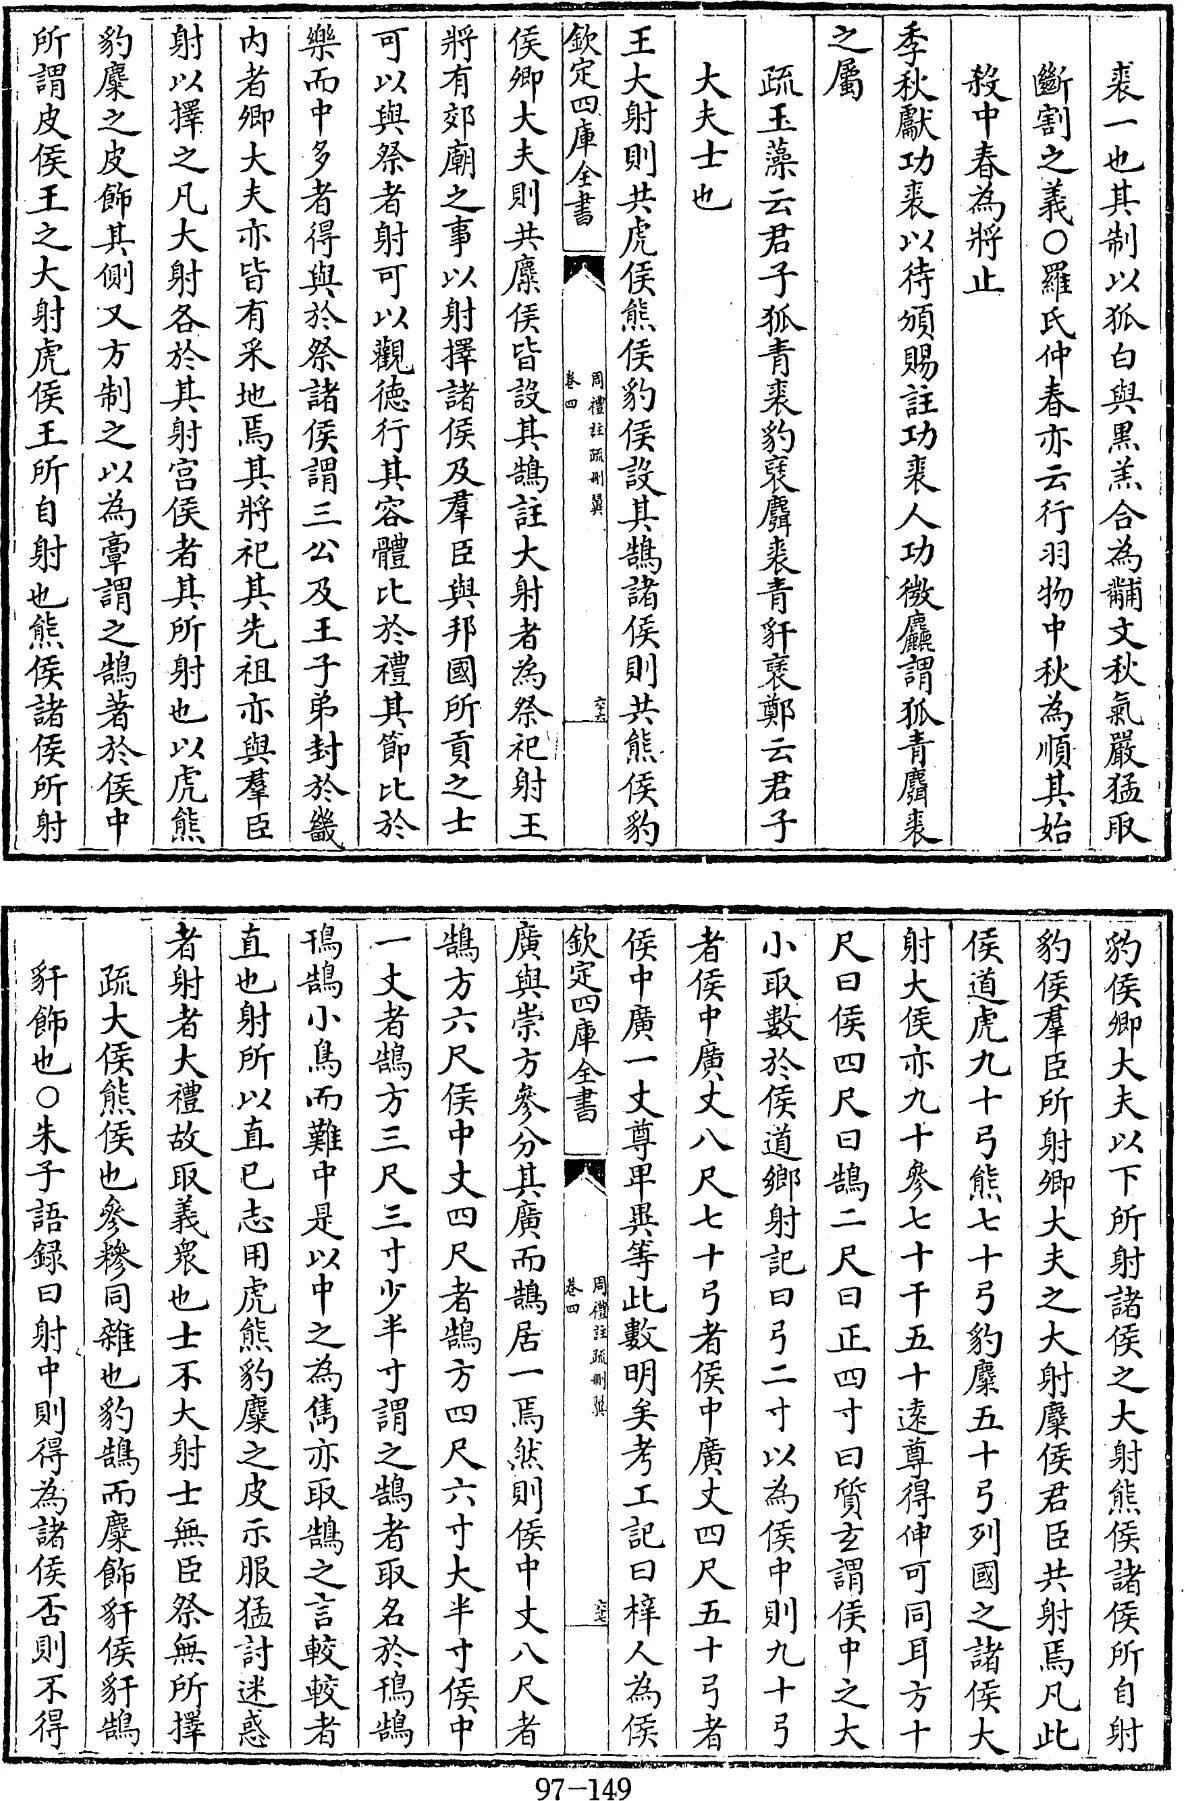 裘一也其制以狐白與黒羔合為黼文秋氣嚴猛取
斷割之義○羅氏仲春亦云行羽物中秋為順其始
殺中春為將止
季秋獻功裘以待頒賜註功裘人功微麤謂狐青麛裘
之屬
疏玉藻云君子狐青裘豹褎麛裘青豻褎鄭云君子
大夫士也
王大射則共虎侯熊侯豹侯設其鵠諸侯則共熊侯豹
欽定四庫全書
周禮註疏刪翼
卷四
六十六
侯卿大夫則共麋侯皆設其鵠註大射者為祭祀射王
將有郊廟之事以射擇諸侯及羣臣與邦國所貢之士
可以與祭者射可以觀德行其容體比於禮其節比於
樂而中多者得與於祭諸侯謂三公及王子弟封於畿
内者卿大夫亦皆有采地焉其將祀其先祖亦與羣臣
射以擇之凡大射各於其射宫侯者其所射也以虎熊
豹麋之皮飾其側又方制之以為𩫖謂之鵠著於侯中
所謂皮侯王之大射虎侯王所自射也熊侯諸侯所射
豹侯卿大夫以下所射諸侯之大射熊侯諸侯所自射
豹侯羣臣所射卿大夫之大射麋侯君臣共射焉凡此
侯道虎九十弓熊七十弓豹麋五十弓列國之諸侯大
射大侯亦九十參七十干五十逺尊得伸可同耳方十
尺曰侯四尺曰鵠二尺曰正四寸曰質玄謂侯中之大
小取數於侯道鄉射記曰弓二寸以為侯中則九十弓
者侯中廣丈八尺七十弓者侯中廣丈四尺五十弓者
侯中廣一丈尊卑異等此數明矣考工記曰梓人為侯
欽定四庫全書
周禮註疏刪翼
卷四
六十七
廣與崇方參分其廣而鵠居一焉然則侯中丈八尺者
鵠方六尺侯中丈四尺者鵠方四尺六寸大半寸侯中
一丈者鵠方三尺三寸少半寸謂之鵠者取名於鳱鵠
鳱鵠小鳥而難中是以中之為雋亦取鵠之言較較者
直也射所以直已志用虎熊豹麋之皮示服猛討迷惑
者射者大禮故取義衆也士不大射士無臣祭無所擇
疏大侯熊侯也參糝同雜也豹鵠而麋飾豻侯豻鵠
豻飾也○朱子語録曰射中則得為諸侯否則不得
97-149